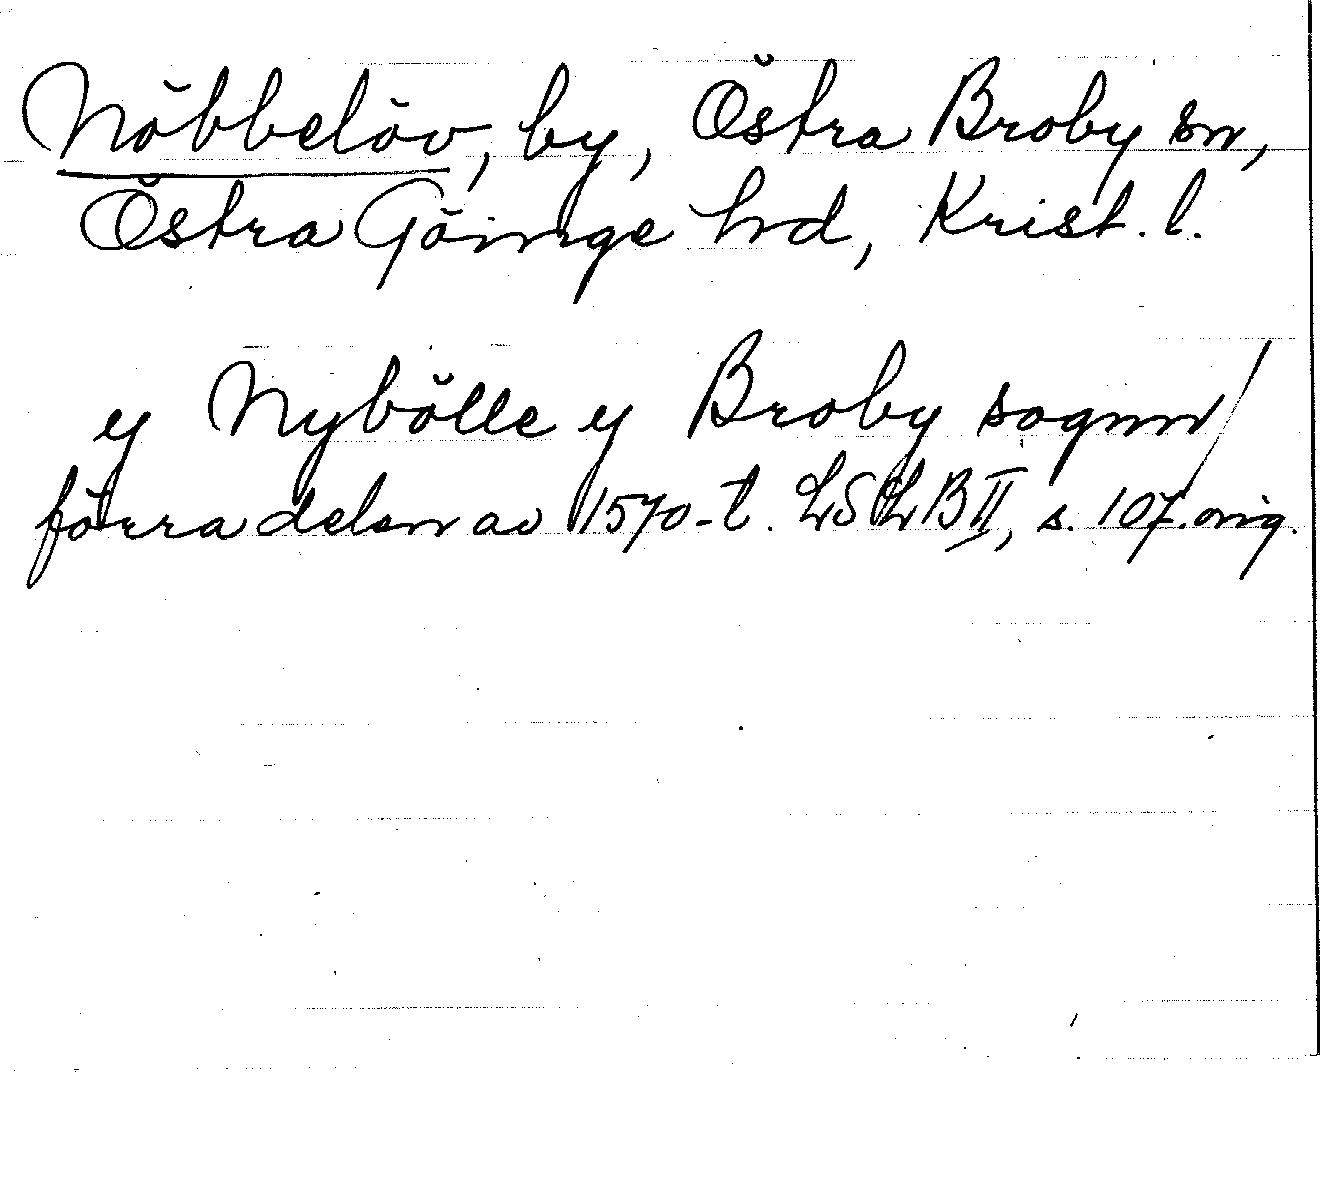 Nöbbelöv, by, Östra Broby sn,
Östra Göinge hd, Krist. l.
y Nybölle y Broby sognn/
förra delen av 1570-t. LSLB II, s. 107. orig.